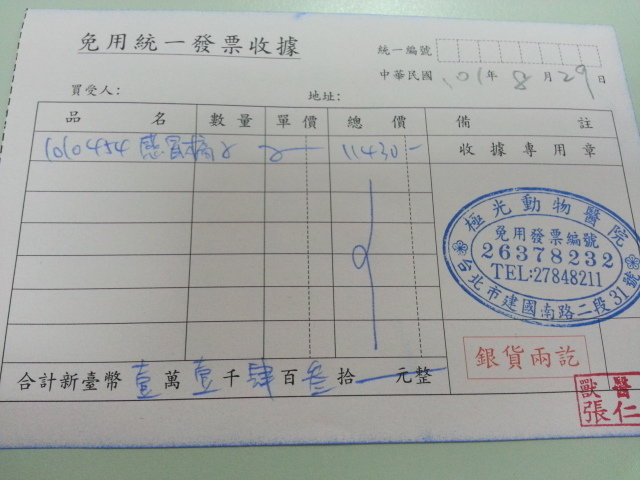 免用統一發票收據
統一編號
中華民國 101 年 8 月 29 日
買受人: 地址:
品名 數量 單價 總價 備註
1010454 感冒 11430- 收據專用章
極光動物醫院
免用發票編號
26378232
TEL:27848211
台北市建國南路二段31號
銀貨兩訖
合計新臺幣 壹 萬 壹 千 肆 百 叁 拾 元整
獸醫
張仁